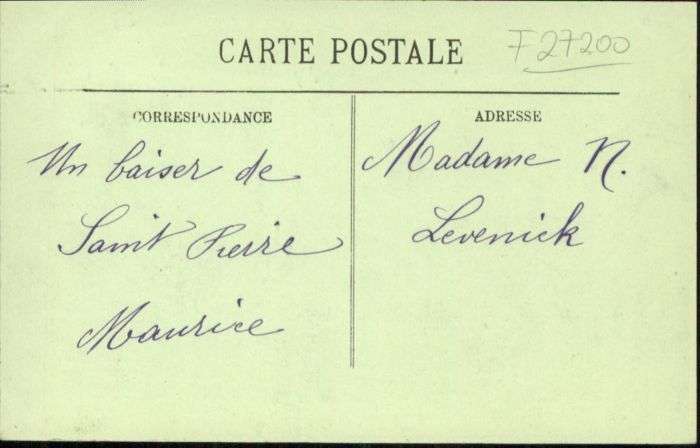 CARTE POSTALE
F 27200
CORRESPONDANCE
Un baiser de
Saint Pierre
Maurice
ADRESSE
Madame N.
Levenick